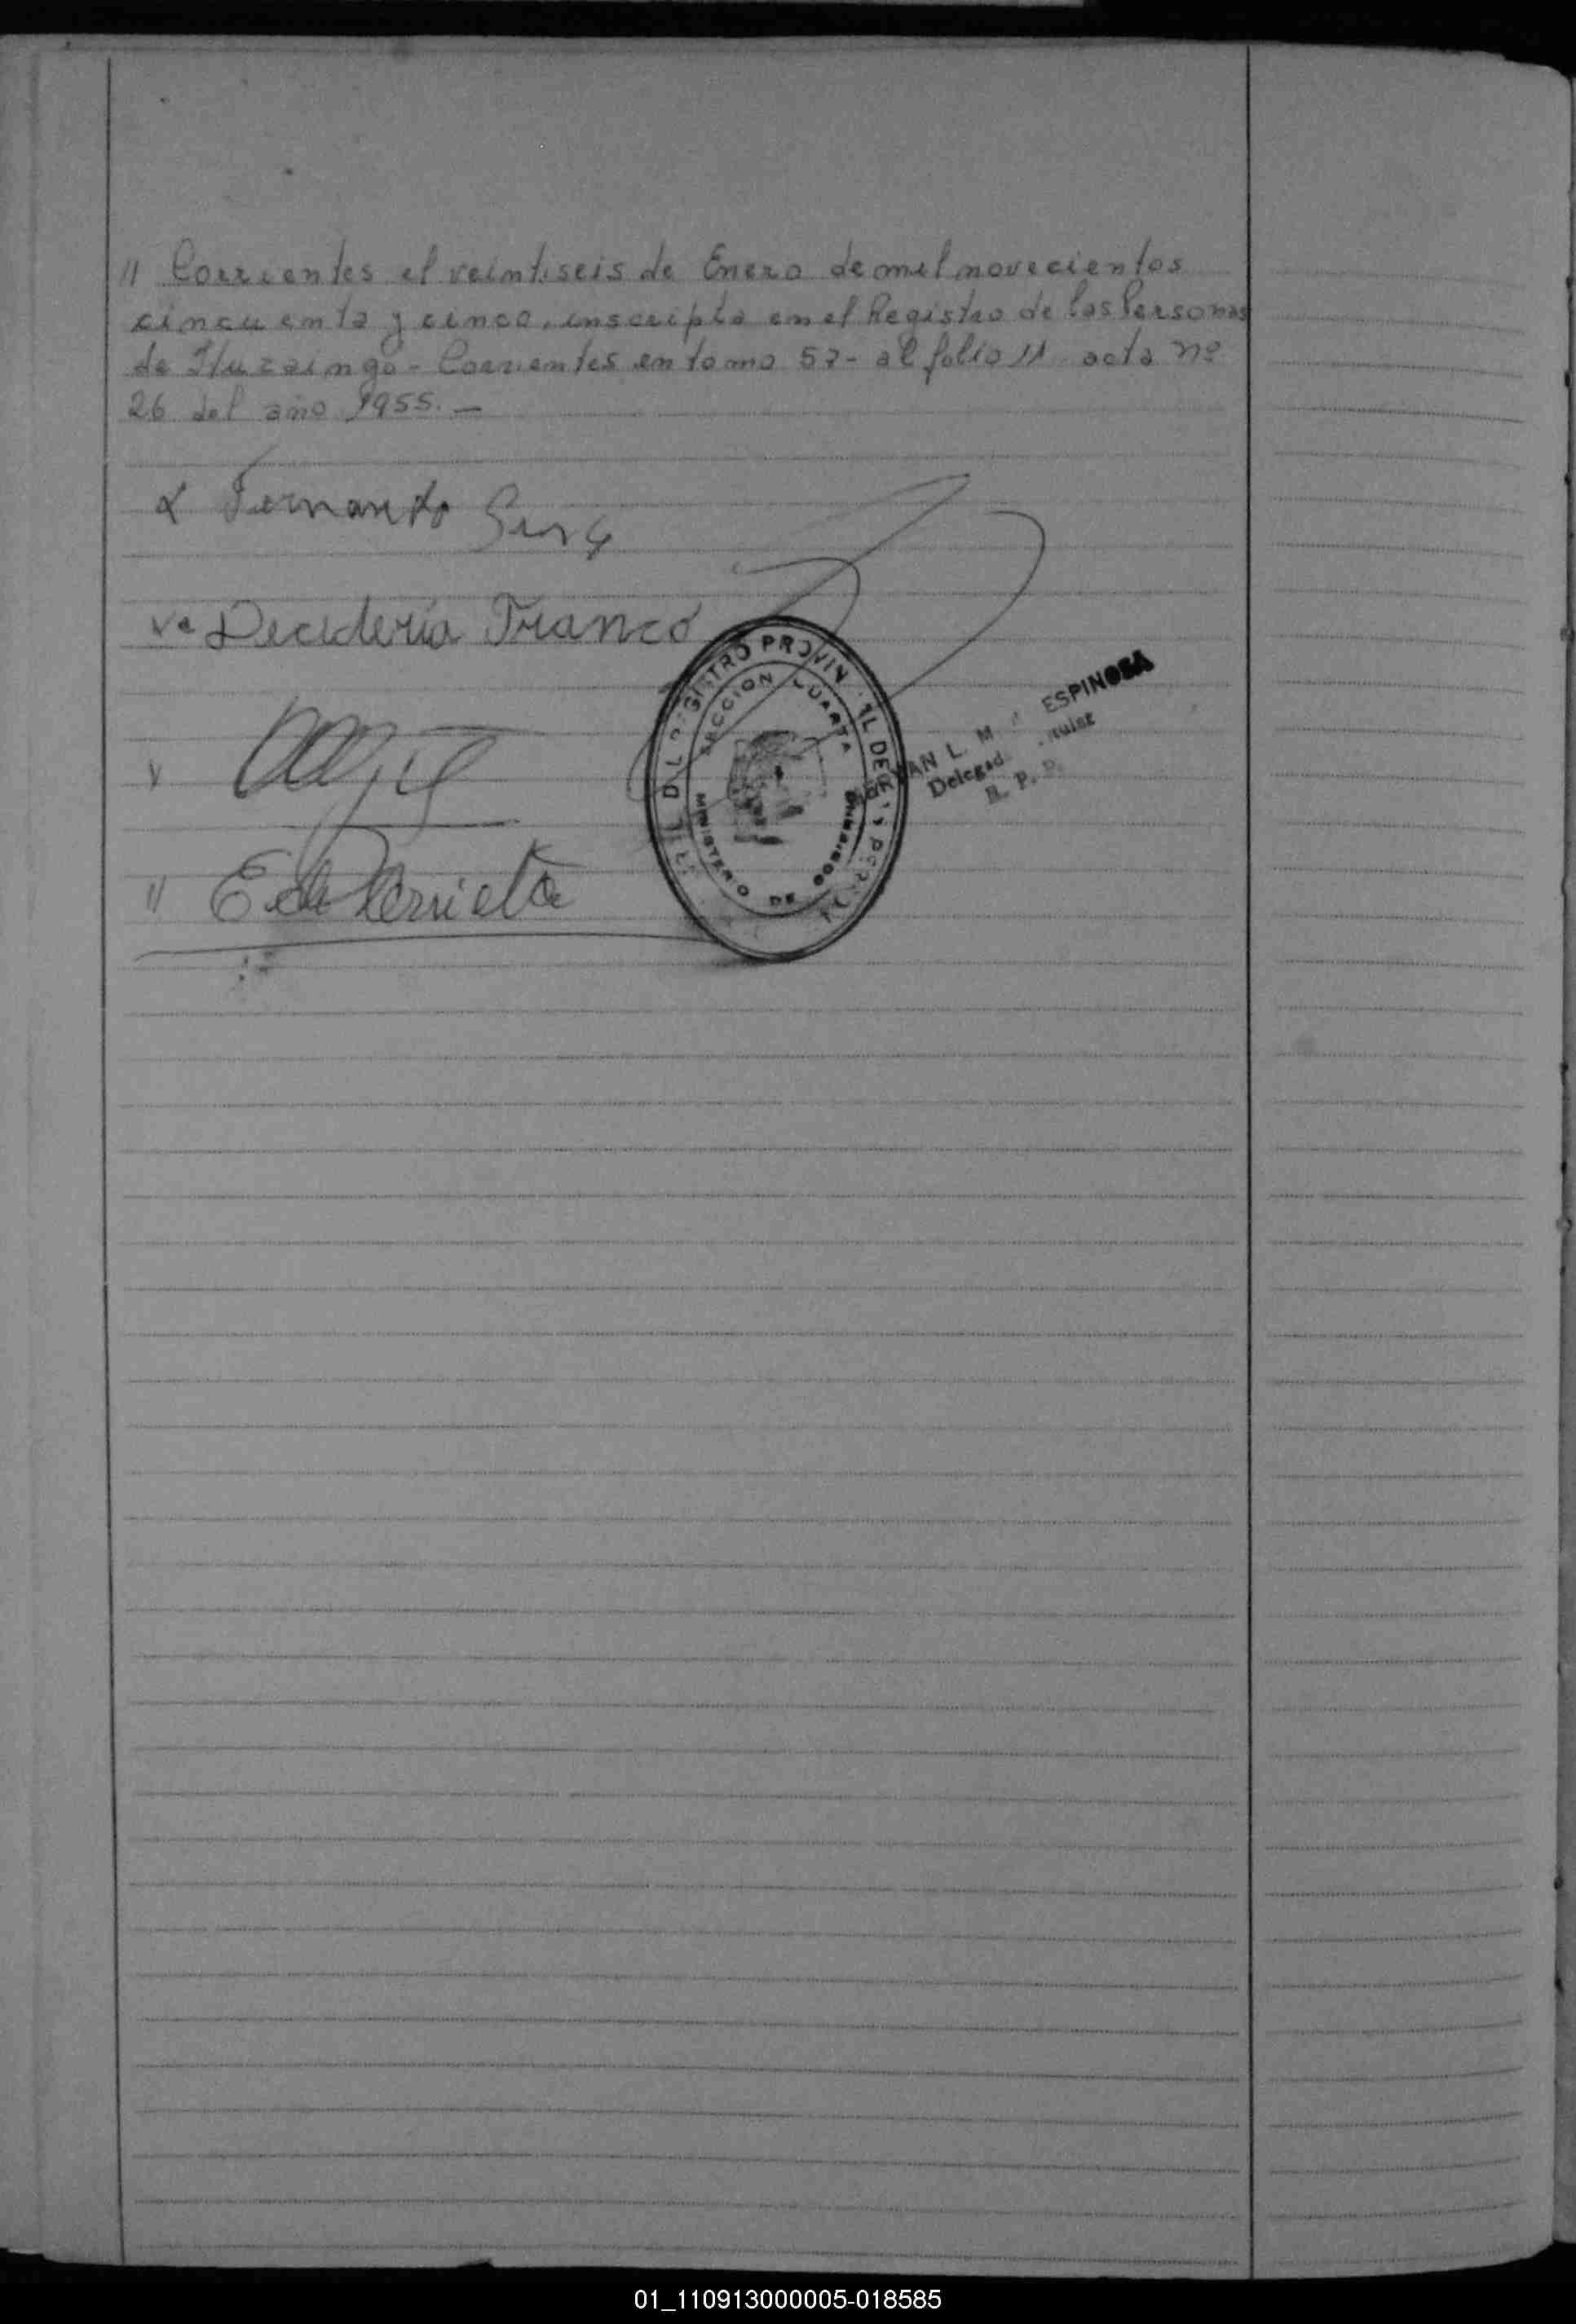 // Corrientes el veintiseis de Enero de mil novecientos
cincuenta y cinco, inscripta en el Registro de las Personas
de Ituzaingo - Corrientes en tomo 57 - al folio 11 acta nº
26 del año 1955. —
Fernando
Decideria Franco
REGISTRO PROVIN
SECCION CUARTA
MINISTERIO DE GOBIERNO
L. M ESPINOSA
Delegad
R. P. P.
E. de
01_110913000005-018585